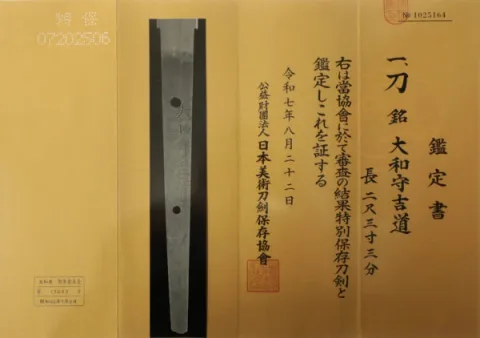 № 1025164
鑑定書
一、刀 銘 大和守吉道
長 二尺三寸三分
右は當協會に於て審査の結果特別保存刀剣と
鑑定しこれを証する
令和七年八月二十二日
公益財團法人 日本美術刀剣保存協會
保
07202506